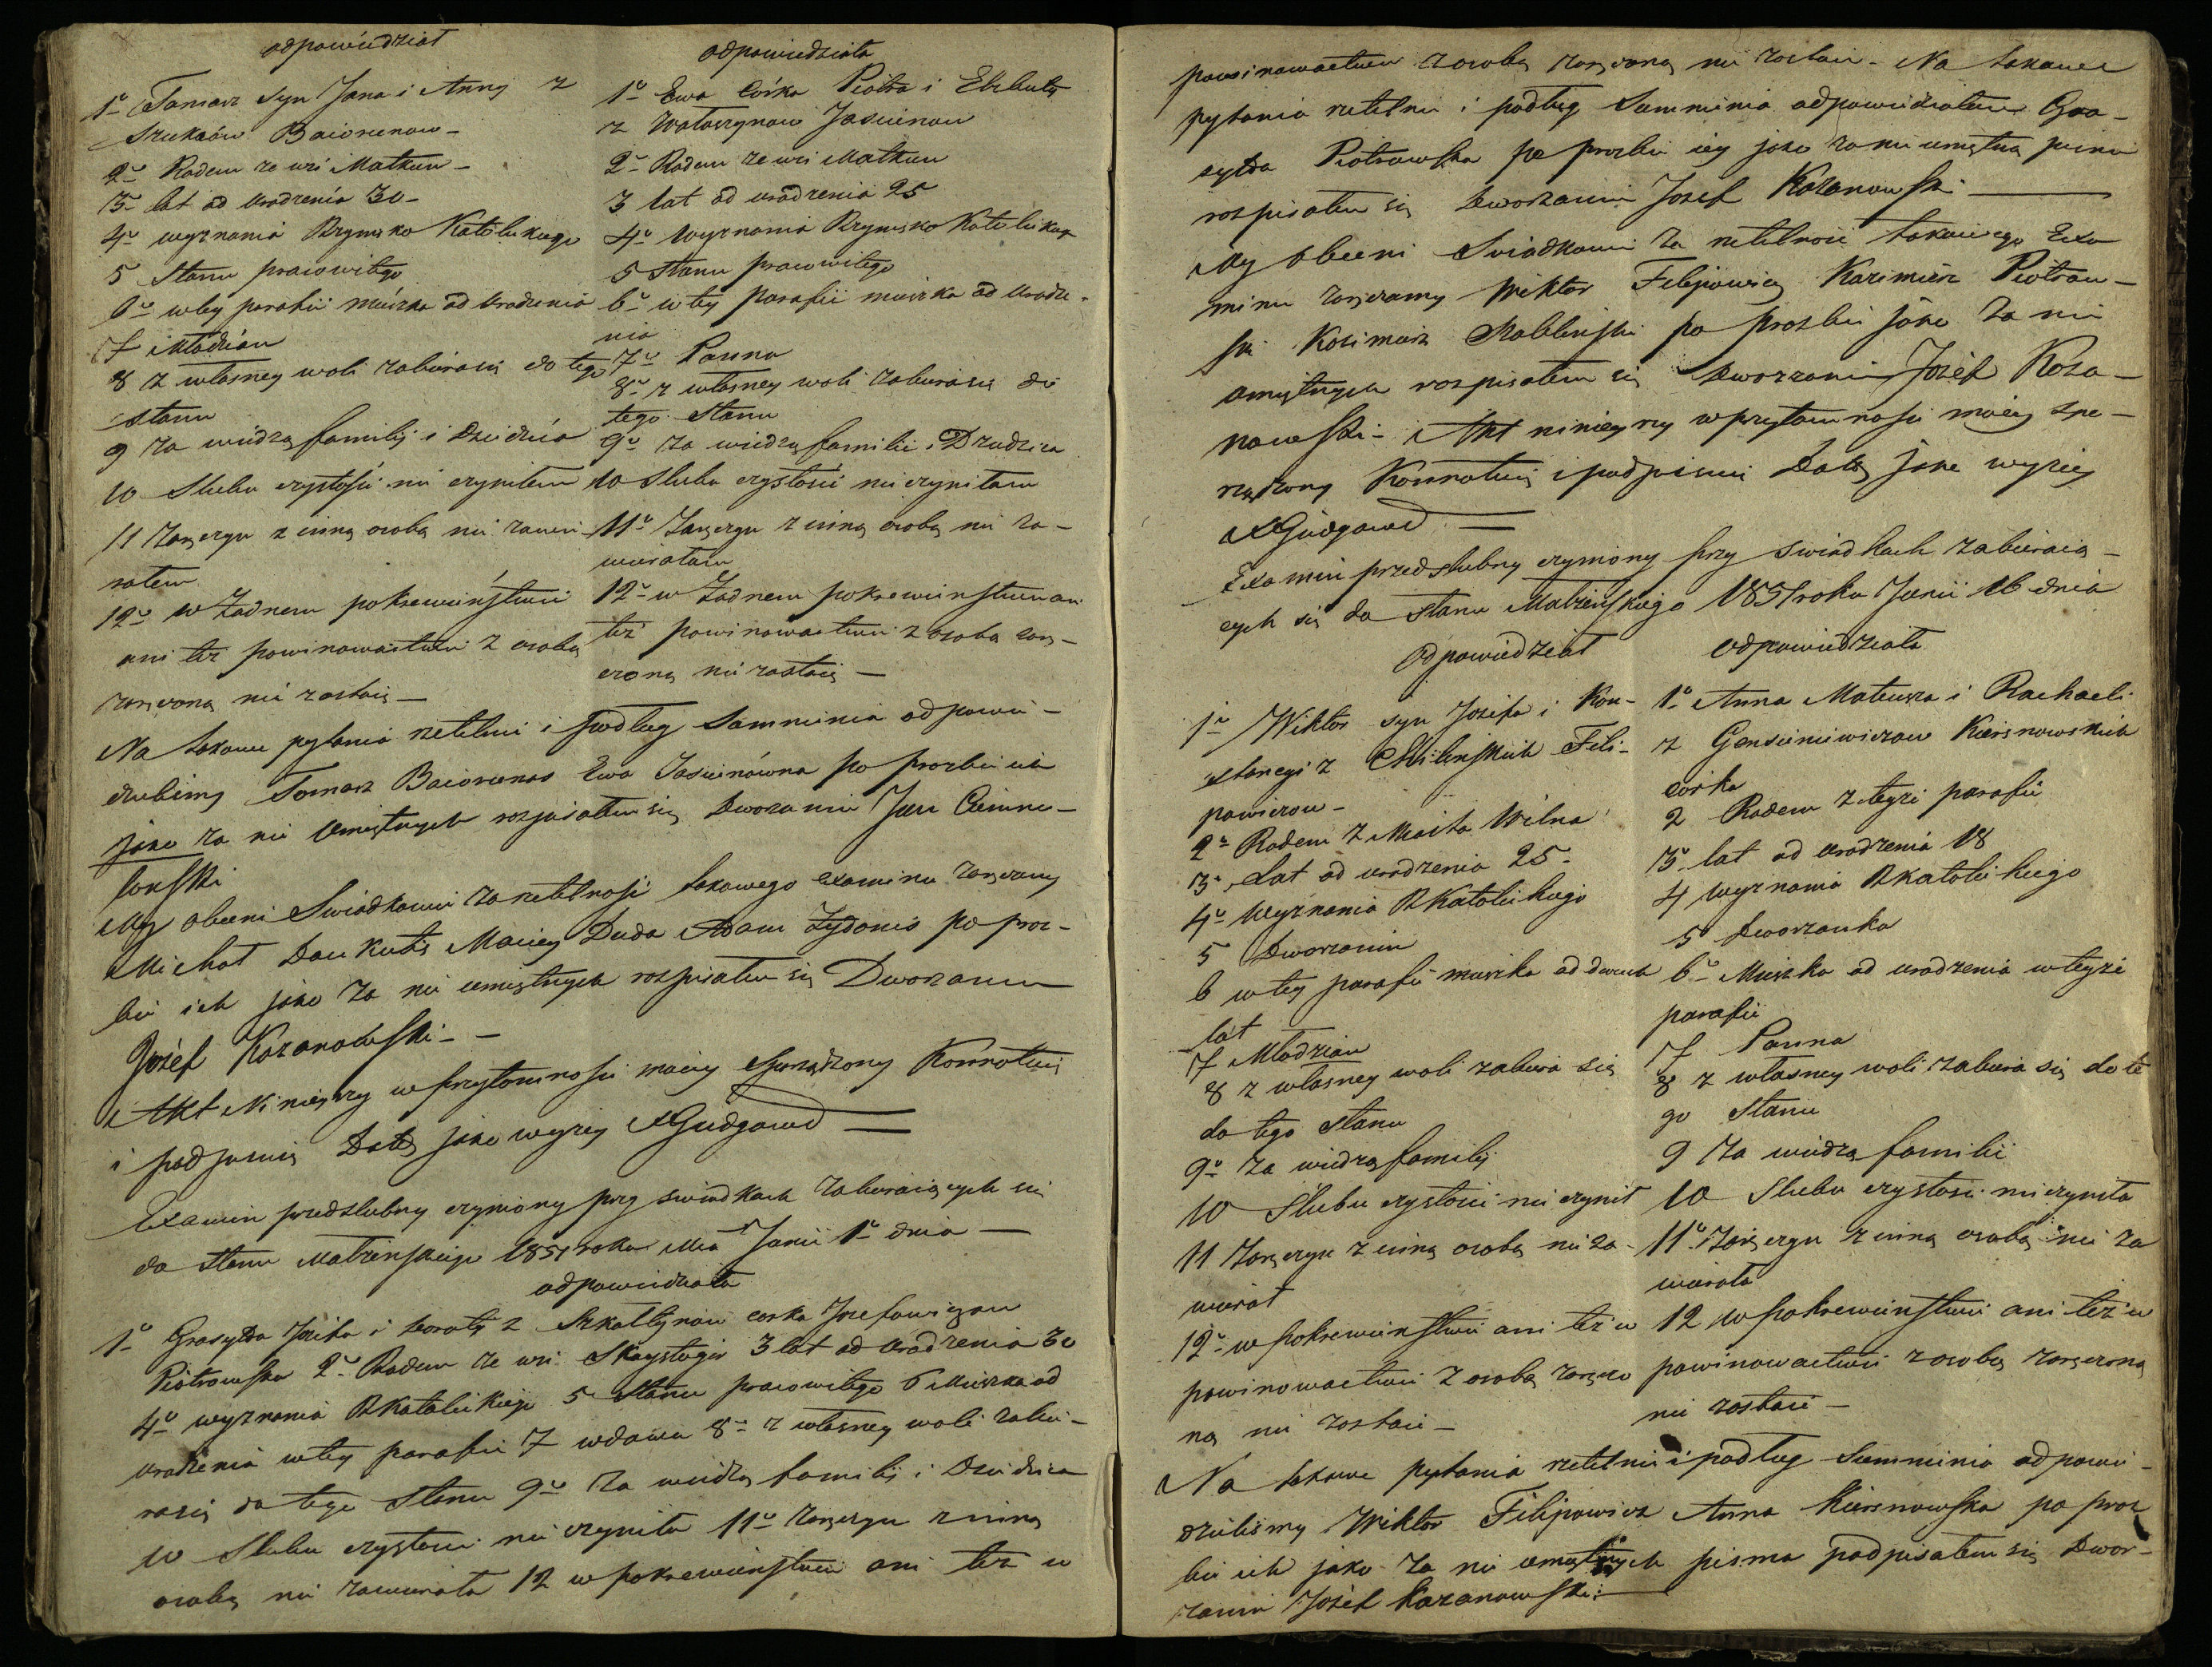 odpowiedział
1o Tomasz syn Jana i Anny z
Baiorunow -
2o Rodem ze wsi Matkun -
3 lat od urodzenia 30 -
4o wyznania Rzymsko Katolickiego
5 Stanu pracowitego
6o w tey parafii mieszka od urodzenia
7 Młodzian
8 z własney woli zabiera się do tego
stanu
9 Za wiedzą familij i Dziedzica
10 Slubu czystości nie czyniłem
11 Zaręczyn z inną osobą nie zawie-
rałem
12o w Żadnem pokrewienstwie
ani też powinowactwie z osobą
zaręczoną nie zostaię -
odpowiedziała
1o Ewa córka Piotra i Elżbiety
z Wołoszynow Jasiunow
2o Rodem ze wsi Matkun
3 lat od urodzenia 25
4o Wyznania Rzymsko Katolickiego
5 stanu pracowitego
6o w tey Parafii mieszka od urodze-
nia
7o Panna
8o z własney woli zabiera się do
tego Stanu
9o za wiedzą familii i Dziedzica
10 Slubu czystości nie czyniłam
11o Zaręczyn z inną osobą nie za-
wierałam
12o w Żadnem pokrewienstwie ani
też powinowactwie z osobą zarę-
czoną nie zostaię -
Na takowe pytania rzetelnie i podług Summienia odpowie-
dzieliśmy Tomasz Baiorunas Ewa Jasiunówna po prozbie ich
jako za nie Umiętnych rozpisałem się Dworzanin Jan
My obecni Swiadkowie za rzetelność takowego examinu zaręczamy
Michał Maciey Duda Adam Żydonis po proz-
bie ich jako za nie umiętnych rozpisałem się Dworzanin
Józef Kozanowski - -
Akt Ninieyszy w przytomności moiey sporządzony Konnotuię
i podpisuię Datą jako wyżey X Giedgowd
Examin przedslubny czyniony przy swiadkach zabieraiących się
do stanu Małżenskiego 1851 roku Mca Junii 1o dnia -
odpowiedziała
1o Grasylda Józefa i Doroty z corka Jozefowiczow
Piotrowska 2o Rodem ze wsi Skaystogir 3 lat od urodzenia 30
4o wyznania RKatolickiego 5 Stanu pracowitego 6 Mieszka od
urodzenia w tey parafii 7 wdowa 8o z własney woli zabie-
ra się do tego Stanu 9o Za wiedzą familij i Dziedzica
10 Slubu czystosci nie czyniła 11o Zaręczyn z inną
osobą nie zawierała 12 w pokrewienstwie ani też w
powinowactwie z osobą zaręczoną nie zostaie - Na takowe
pytania rzetelnie i podług Summienia odpowiedziałam Gra-
sylda Piotrowska po prozbie iey jako za nie umiętną pisma
rozpisałem się Dworzanin Jozef Kozanowski
My Obecni Swiadkowie Za rzetelność takowego Exa-
minu zaręczamy Wiktor Filipowicz Kazimierz Piotrow-
ski Kazimierz po prozbie jako za nie
umiętnych rozpisałem się Dworzanin Józef Koza-
nowski - Akt ninieyszy w przytomności moiey spo-
rządzony Konnotuię i podpisuię Datą jako wyżey
X Giedgowd
Examin przedslubny czyniony przy swiadkach zabieraią-
cych się do stanu Małżenskiego 1851 roku Junii 16 dnia
Odpowiedział
1o Wiktor syn Jozefa i Kon-
stancyi z Filipowiczow -
2o Rodem z Miasta Wilna
3o Lat od urodzenia 25 -
4o Wyznania RKatolickiego
5 Dworzanin
6 w tey parafii mieszka od dwuch
lat
7 Młodzian
8 z własney woli zabiera się
do tego stanu
9o Za wiedzą familij
10 Slubu czystości nie czynił
11 Zaręczyn z inną osobą nie za-
wierał
12o w pokrewienstwie ani też w
powinowactwie z osobą zaręczo
ną nie zostaie -
Odpowiedziała
1o Anna Mateusza i Rachaeli
z Kiersnowskich
corka
2 Rodem z teyże parafii
3o lat od urodzenia 18
4 wyznania RKatolickiego
5 Dworzanka
6o Mieszka od urodzenia w teyże
parafii
7 Panna
8 z własney woli zabiera się do te
go Stanu
9 Za wiedzą familii
10 Slubu czystosci nie czyniła
11o Zaręczyn z inną osobą nie za
wierała
12 w pokrewienstwie ani też w
powinowactwie z osobą zaręczoną
nie zostaie -
Na takowe pytania rzetelnie i podług Summienia odpowie-
dzieliśmy Wiktor Filipowicz Anna Kiersnowska po proz
bie ich jako za nie umiętnych pisma podpisałem się Dwor-
zanin Józef Kozanowski